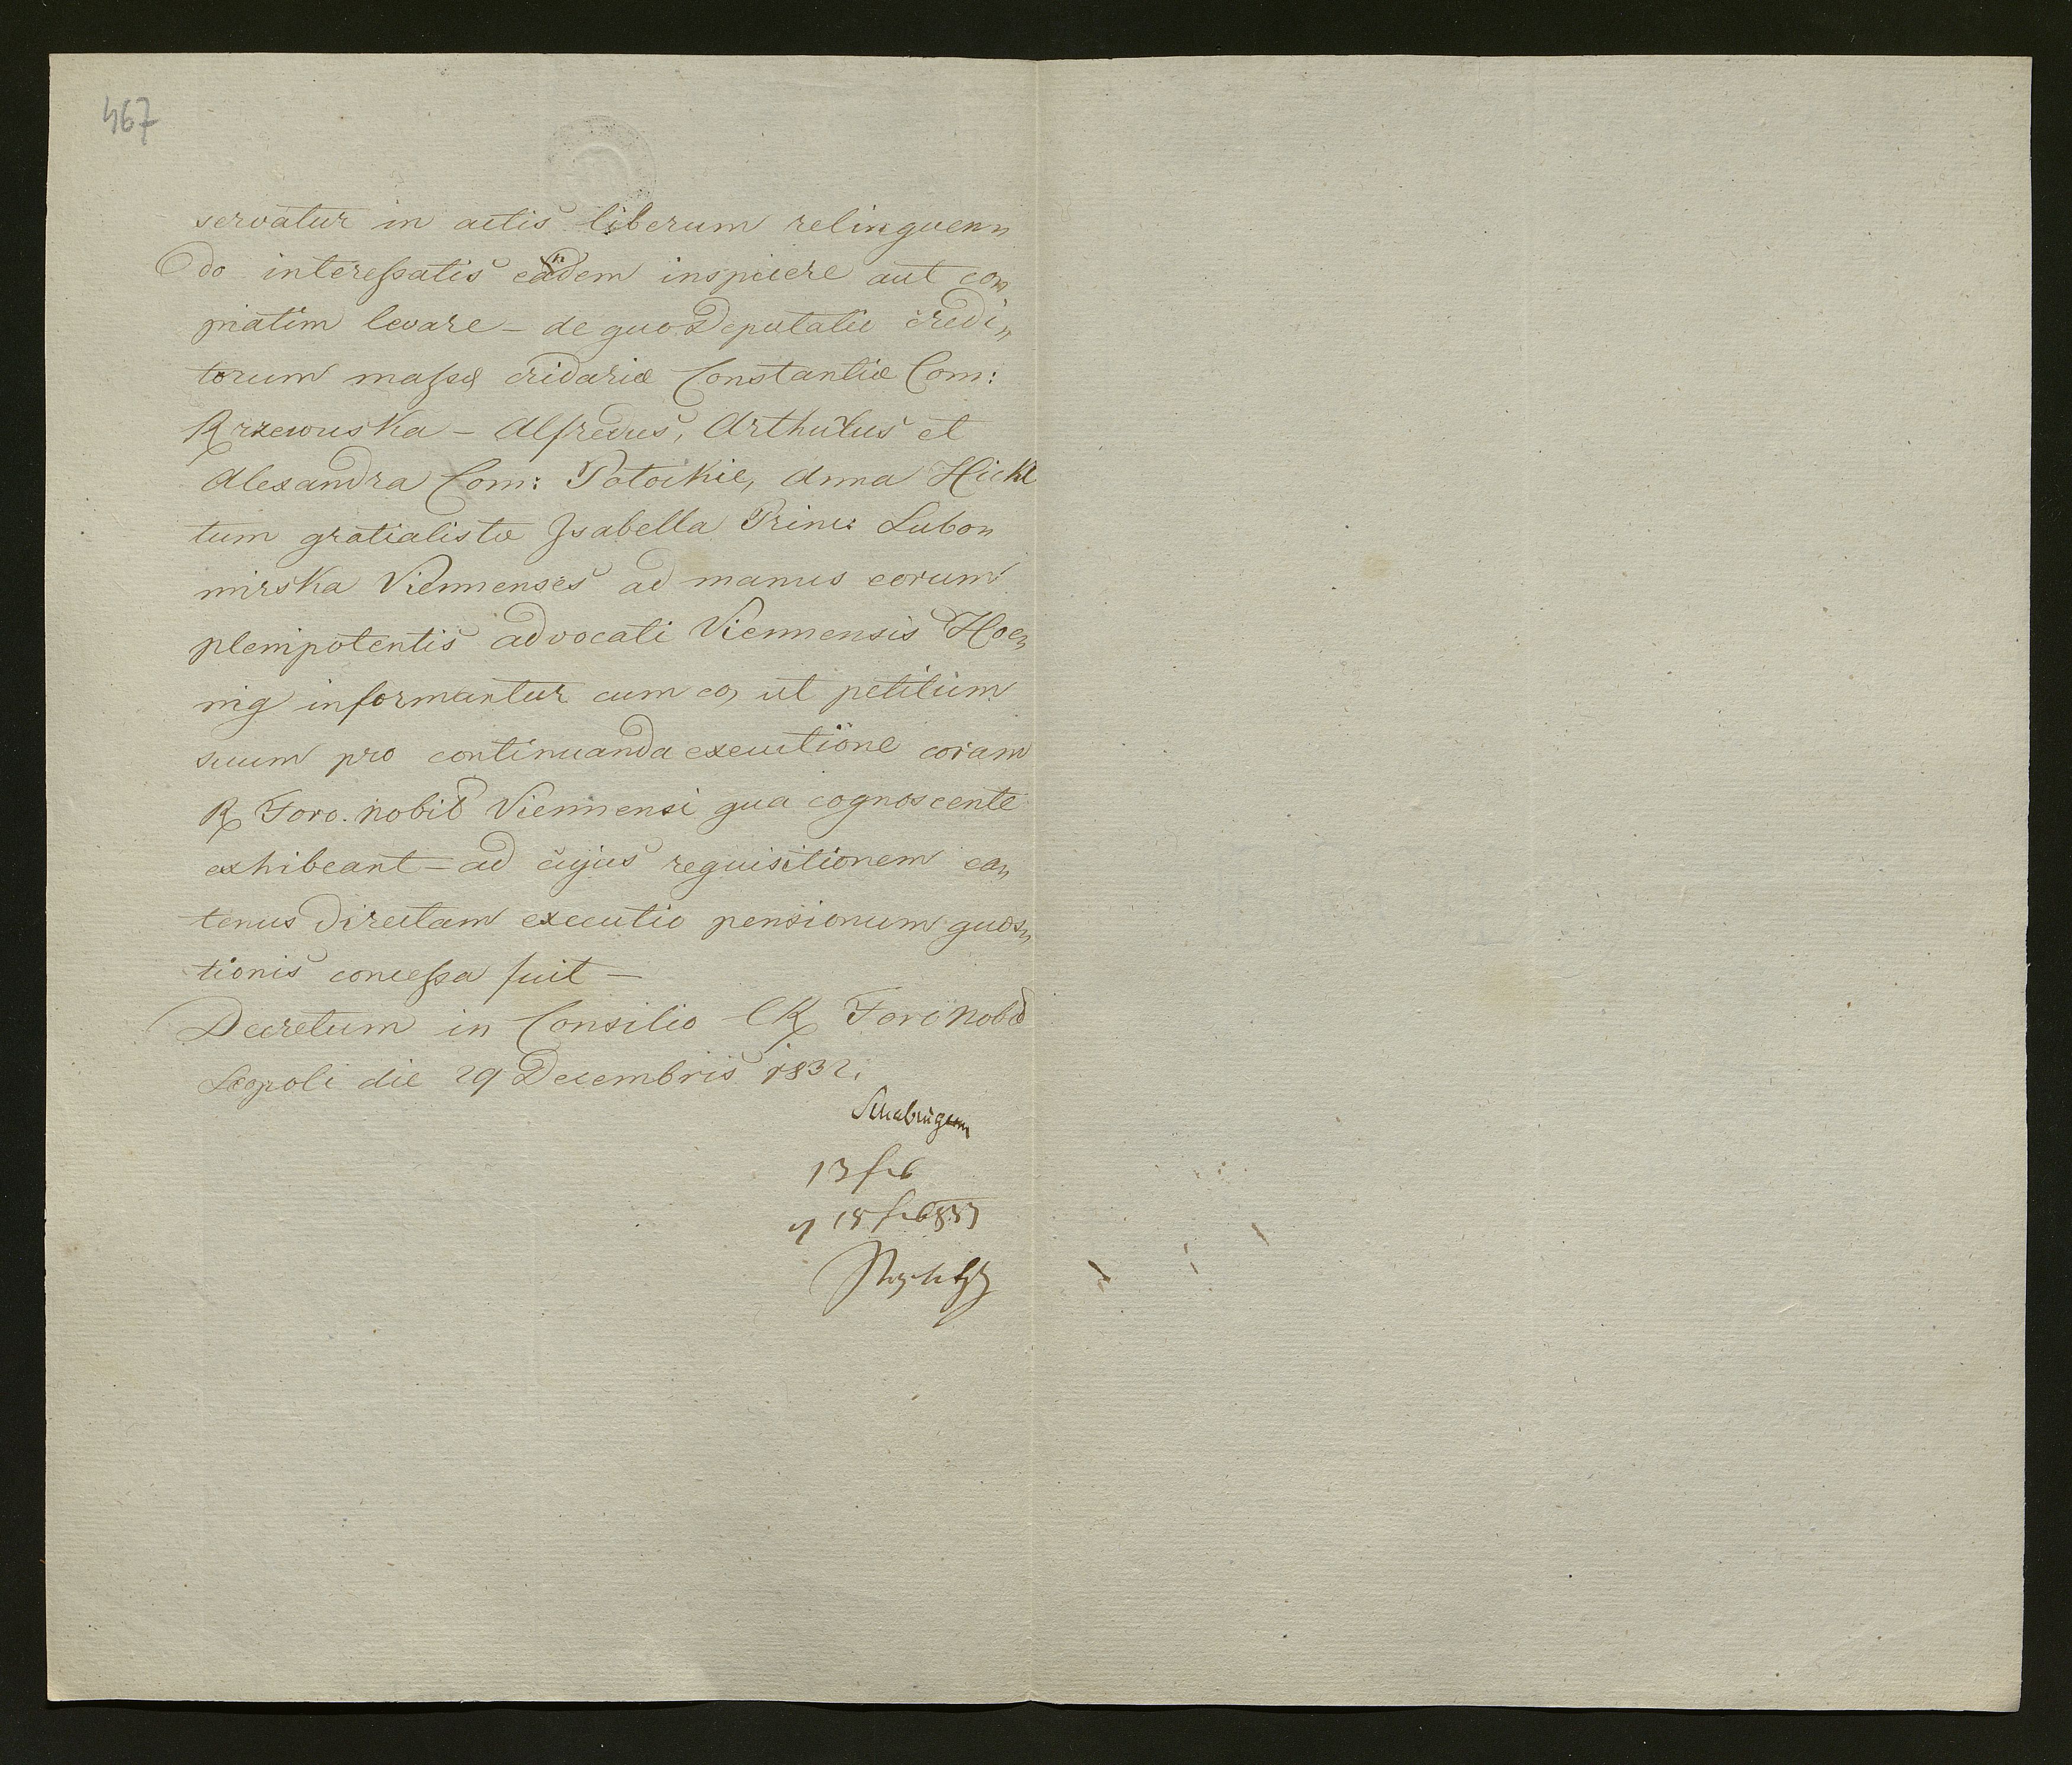 467
servatur in actis liberum relinquen„
do interessatis eadem inspicere aut co„
piatim levare – de quo Deputatio credi„
torum massæ cridariæ Constantiæ Com:
Rzewuska – Alfredus, Arthurus et
Alexandra Com: Potockie, Anna Hickl
tum gratialistæ Isabella Princ: Lubo„
mirska Viennenses ad manus eorum
plenipotentis advocati Viennensis Hoe„
nig informantur cum eo, ut petitum
suum pro continuanda executione coram
R Foro. Nobil Viennensi qua cognoscente
exhibeant – ad cujus requisitionem ea„
tenus directam executio pensionum quæs„
tionis concessa fuit –
Decretum in Consilio CR Fori Nobil
Leopoli die 29 Decembris 1832.
13 feb
18 feb 833